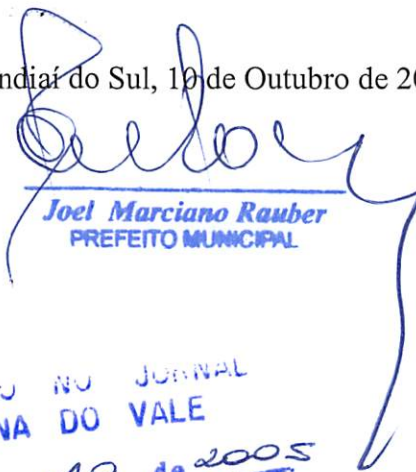 ndiaí do Sul, 10 de Outubro de 20
Joel Marciano Rauber
PREFEITO MUNICIPAL
NO JORNAL
NA DO VALE
10 de 2005